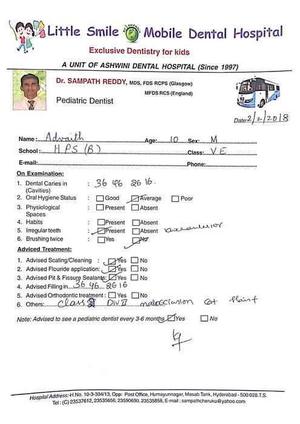 Little Smile Mobile Dental Hospital
Exclusive Dentistry for kids
A UNIT OF ASHWINI DENTAL HOSPITAL (Since 1997)
Dr. SAMPATH REDDY, MDS, FDS RCPS (Glasgow)
MFDS RCS (England)
Pediatric Dentist
Date: 2/2/2018
Name: Advaith Age 10 Sex M
School: HPS (B) Class: V E
E-mail: Phone:
On Examination:
1. Dental Caries in (Cavities) : 36 46 26 16.
2. Oral Hygiene Status : Good Average Poor
3. Physiological Spaces : Present Absent
4. Habits : Present Absent
5. Irregular teeth : Present Absent
6. Brushing twice : Yes No
Advised Treatment:
1. Advised Scaling/Cleaning : Yes No
2. Advised Flouride application: Yes No
3. Advised Pit & Fissure Sealants: Yes No
4. Advised Filling in 36 46 26 16
5. Advised Orthodontic treatment : Yes No
6. Others: Class II DIV II malocclusion
Note: Advised to see a pediatric dentist every 3-6 months Yes No
Hospital Address: H.No. 10-3-304/13, Opp: Post Office, Humayunnagar, Masab Tank, Hyderabad - 500 028 T.S.
Tel: (C) 23537612, 23535656, 23590630, 23535858, E-mail : sampathcheruku@yahoo.com